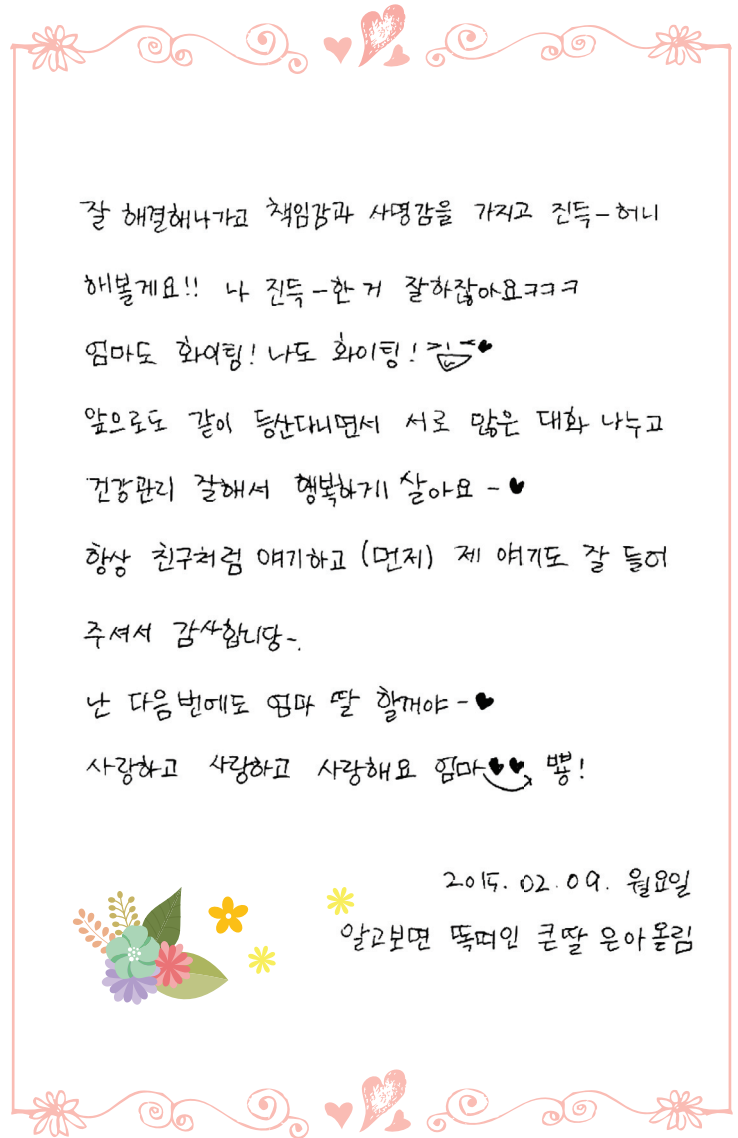 잘 해결해나가고 책임감과 사명감을 가지고 진득-허니
해볼게요!! 나 진득-한 거 잘하잖아요ㅋㅋㅋ
엄마도 화이팅! 나도 화이팅! ♥
앞으로도 같이 등산다니면서 서로 많은 대화 나누고
건강관리 잘해서 행복하게 살아요 - ♥
항상 친구처럼 얘기하고 (먼저) 제 얘기도 잘 들어
주셔서 감사합니당~.
난 다음번에도 엄마 딸 할꺼야 - ♥
사랑하고 사랑하고 사랑해요 엄마♥♥ 뿅!
2015. 02. 09. 월요일
알고보면 똑띠인 큰딸 은아올림